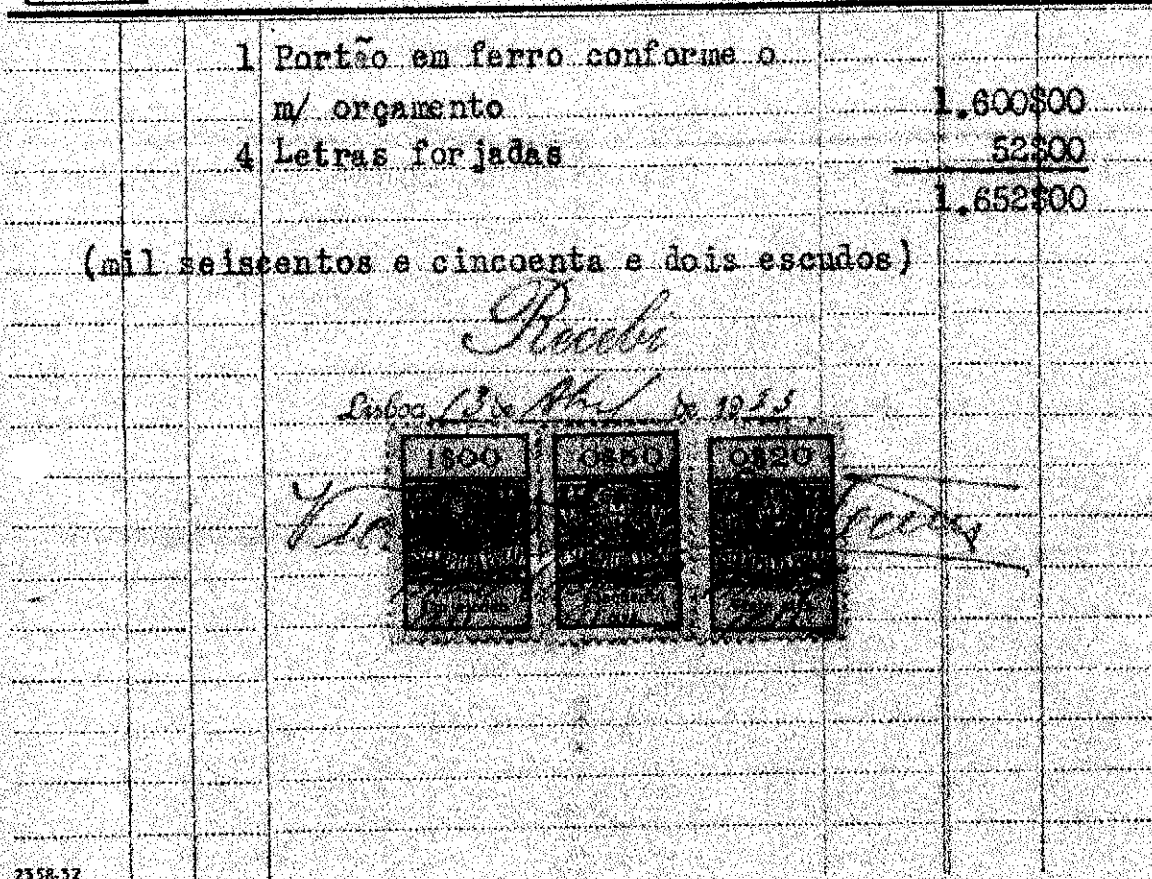 1 Portão em ferro conforme o
m/ orçamento 1.600$00
4 Letras forjadas 52$00
1.652$00
(mil seiscentos e cincoenta e dois escudos)
Recebi
Lisboa, 13 de Abril de 19
1$00 0$50 0$20
2358-37